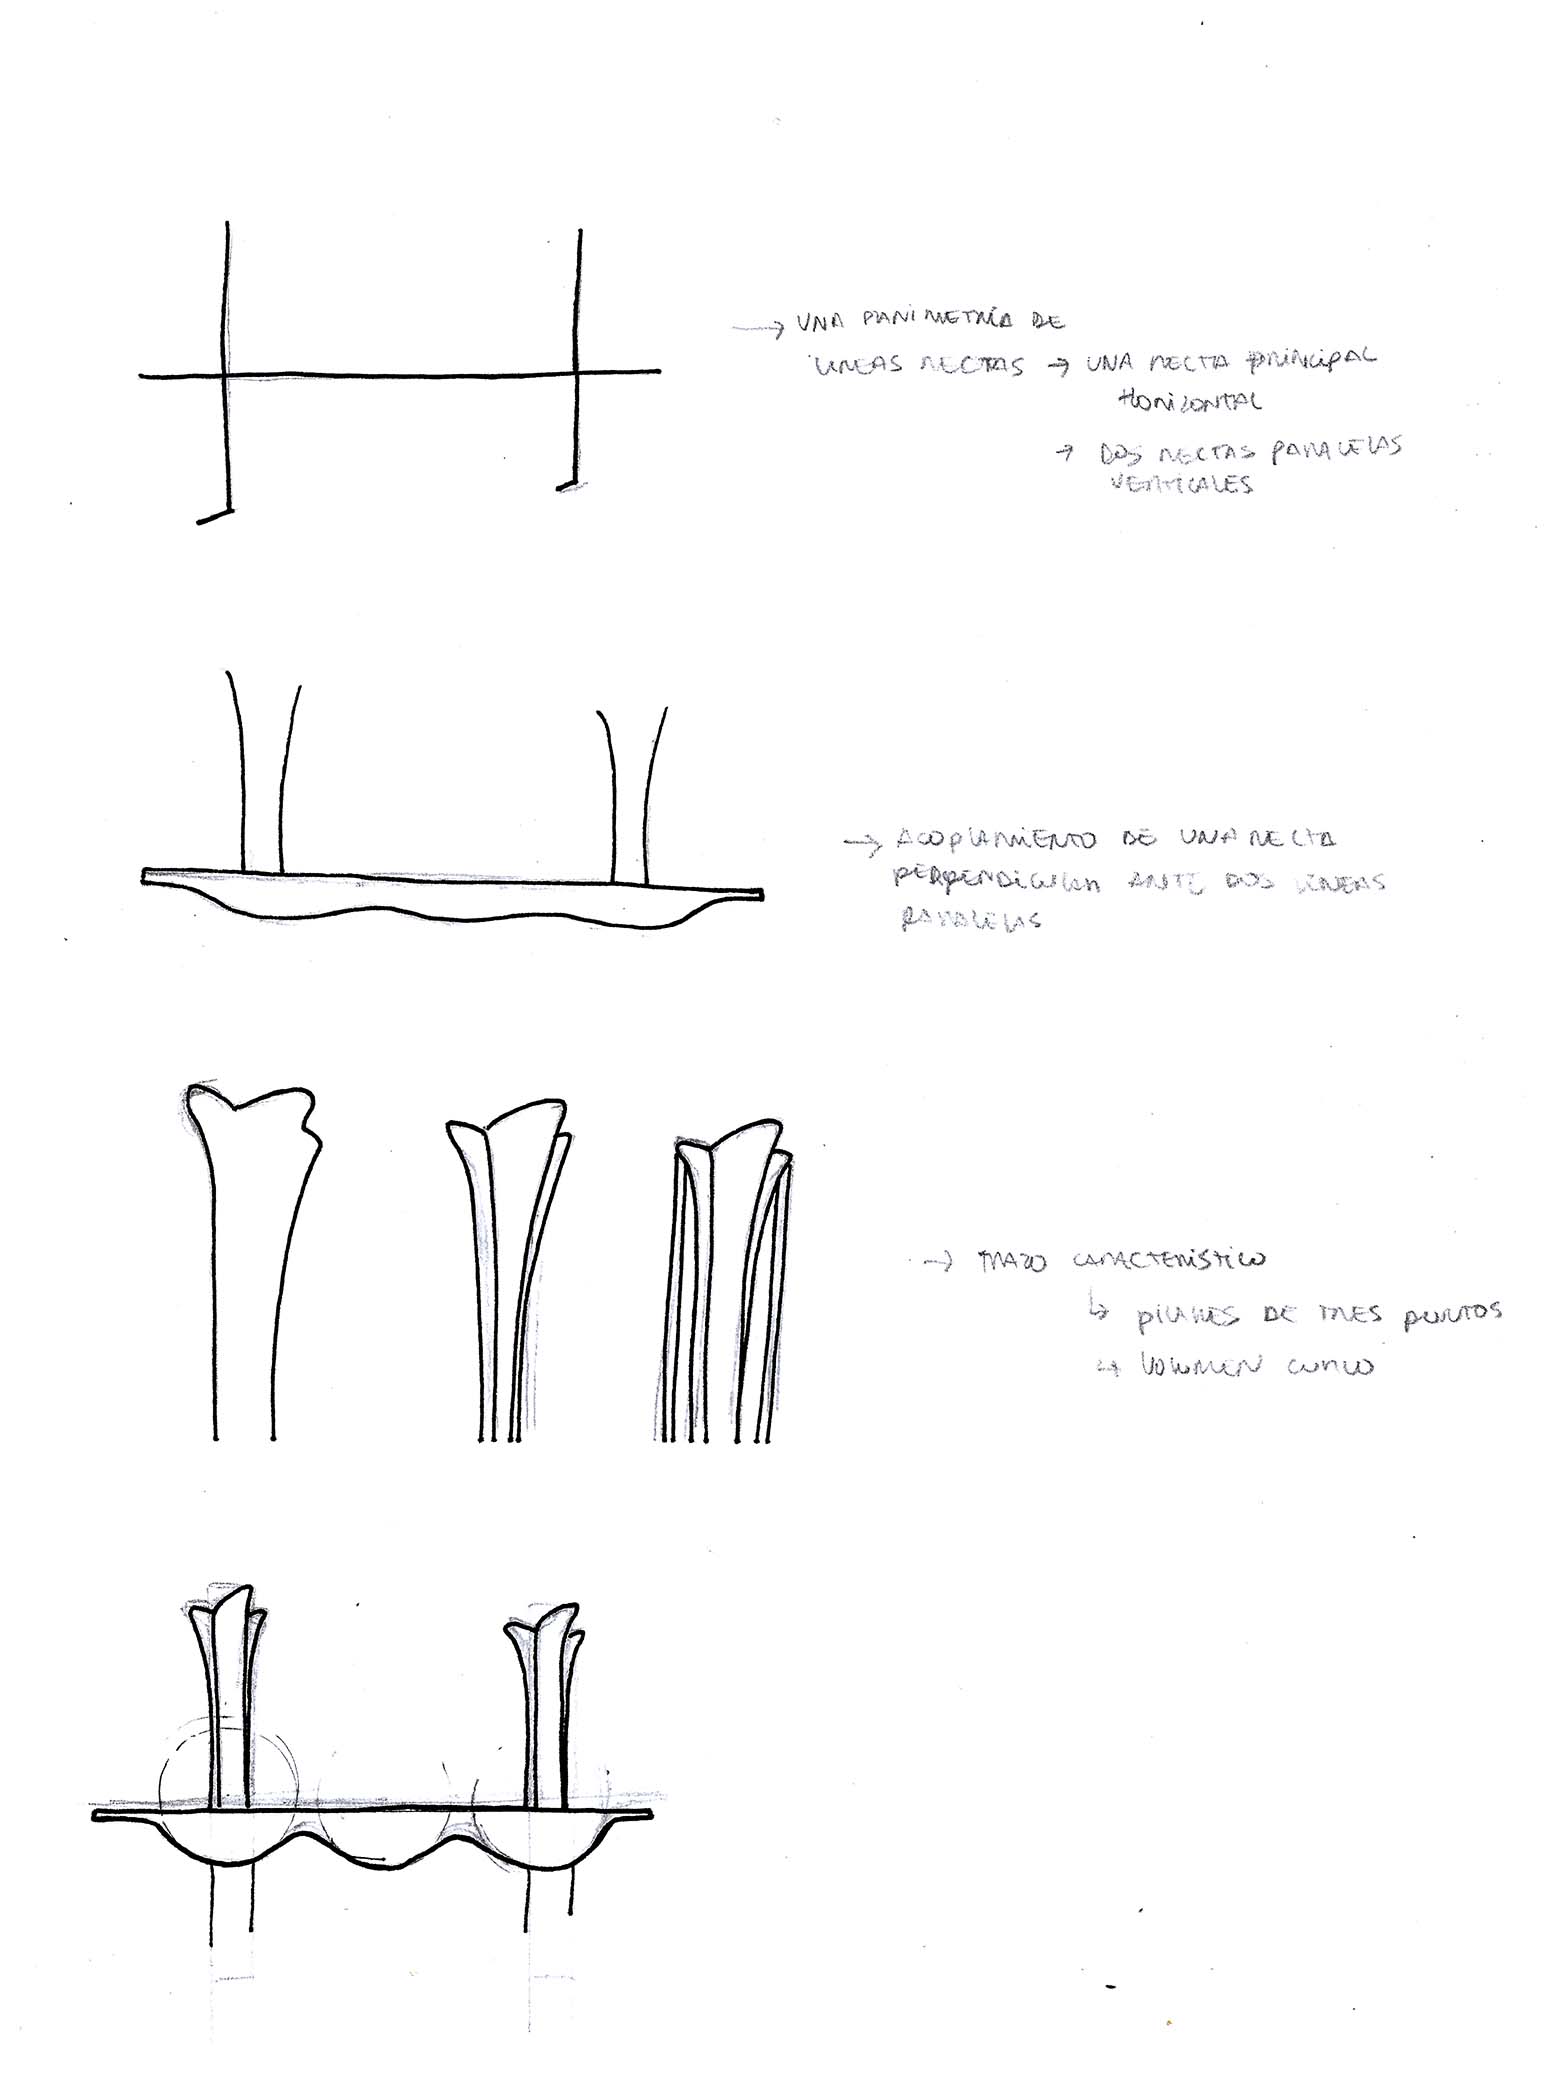 → UNA PANIMETRÍA DE
LINEAS RECTAS → UNA RECTA PRINCIPAL
HORIZONTAL
→ DOS RECTAS PARALELAS
VERTICALES
→ ACOPLAMIENTO DE UNA RECTA
PERPENDICULAR ANTE DOS LINEAS
PARALELAS
→ TRAZO CARACTERÍSTICO
↳ PILARES DE TRES PUNTOS
↳ VOLUMEN CURVO